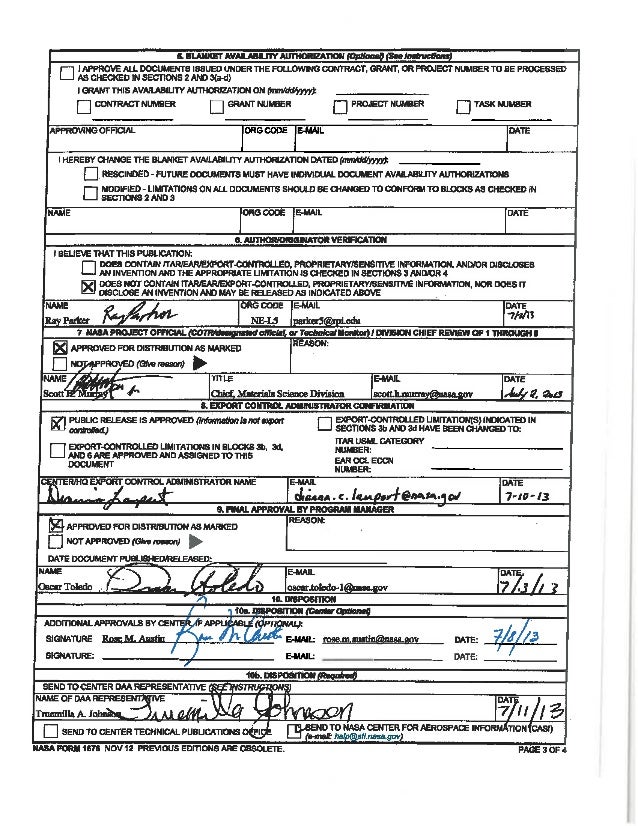 5. BLANKET AVAILABILITY AUTHORIZATION (Optional) (See instructions)
I APPROVE ALL DOCUMENTS ISSUED UNDER THE FOLLOWING CONTRACT, GRANT, OR PROJECT NUMBER TO BE PROCESSED
AS CHECKED IN SECTIONS 2 AND 3(a-d)
I GRANT THIS AVAILABILITY AUTHORIZATION ON (mm/dd/yyyy):
CONTRACT NUMBER GRANT NUMBER PROJECT NUMBER TASK NUMBER
APPROVING OFFICIAL ORG CODE E-MAIL DATE
I HEREBY CHANGE THE BLANKET AVAILABILITY AUTHORIZATION DATED (mm/dd/yyyy):
RESCINDED - FUTURE DOCUMENTS MUST HAVE INDIVIDUAL DOCUMENT AVAILABILITY AUTHORIZATIONS
MODIFIED - LIMITATIONS ON ALL DOCUMENTS SHOULD BE CHANGED TO CONFORM TO BLOCKS AS CHECKED IN
SECTIONS 2 AND 3
NAME ORG CODE E-MAIL DATE
6. AUTHOR/ORIGINATOR VERIFICATION
I BELIEVE THAT THIS PUBLICATION:
DOES CONTAIN ITAR/EAR/EXPORT-CONTROLLED, PROPRIETARY/SENSITIVE INFORMATION, AND/OR DISCLOSES
AN INVENTION AND THE APPROPRIATE LIMITATION IS CHECKED IN SECTIONS 3 AND/OR 4
DOES NOT CONTAIN ITAR/EAR/EXPORT-CONTROLLED, PROPRIETARY/SENSITIVE INFORMATION, NOR DOES IT
DISCLOSE AN INVENTION AND MAY BE RELEASED AS INDICATED ABOVE
NAME ORG CODE E-MAIL DATE
Ray Parker Ray Parker NE-L5 parker5@rpi.edu
7 NASA PROJECT OFFICIAL (COTR/designated official, or Technical Monitor) / DIVISION CHIEF REVIEW OF 1 THROUGH 6
APPROVED FOR DISTRIBUTION AS MARKED REASON:
NOT APPROVED (Give reason)
NAME TITLE E-MAIL DATE
Scott H. Murray Chief, Materials Science Division scott.h.murray@nasa.gov July 2, 2013
8. EXPORT CONTROL ADMINISTRATOR CONFIRMATION
PUBLIC RELEASE IS APPROVED (Information is not export
controlled.)
EXPORT-CONTROLLED LIMITATION(S) INDICATED IN
SECTIONS 3b AND 3d HAVE BEEN CHANGED TO:
EXPORT-CONTROLLED LIMITATIONS IN BLOCKS 3b, 3d,
AND 6 ARE APPROVED AND ASSIGNED TO THIS
DOCUMENT
ITAR USML CATEGORY
NUMBER:
EAR CCL ECCN
NUMBER:
CENTER/HQ EXPORT CONTROL ADMINISTRATOR NAME E-MAIL DATE
7-10-13
9. FINAL APPROVAL BY PROGRAM MANAGER
APPROVED FOR DISTRIBUTION AS MARKED REASON:
NOT APPROVED (Give reason)
DATE DOCUMENT PUBLISHED/RELEASED:
NAME E-MAIL DATE
Oscar Toledo Oscar Toledo oscar.toledo-1@nasa.gov 7/3/13
10. DISPOSITION
10a. DISPOSITION (Center Optional)
ADDITIONAL APPROVALS BY CENTER, IF APPLICABLE (OPTIONAL):
SIGNATURE Rose M. Austin E-MAIL: rose.m.austin@nasa.gov DATE: 7/8/13
SIGNATURE: E-MAIL: DATE:
10b. DISPOSITION (Required)
SEND TO CENTER DAA REPRESENTATIVE (SEE INSTRUCTIONS)
NAME OF DAA REPRESENTATIVE DATE
Truemilla A. Johnson Truemilla Johnson 7/11/13
SEND TO CENTER TECHNICAL PUBLICATIONS OFFICE SEND TO NASA CENTER FOR AEROSPACE INFORMATION (CASI)
(e-mail: help@sti.nasa.gov)
NASA FORM 1676 NOV 12 PREVIOUS EDITIONS ARE OBSOLETE. PAGE 3 OF 4